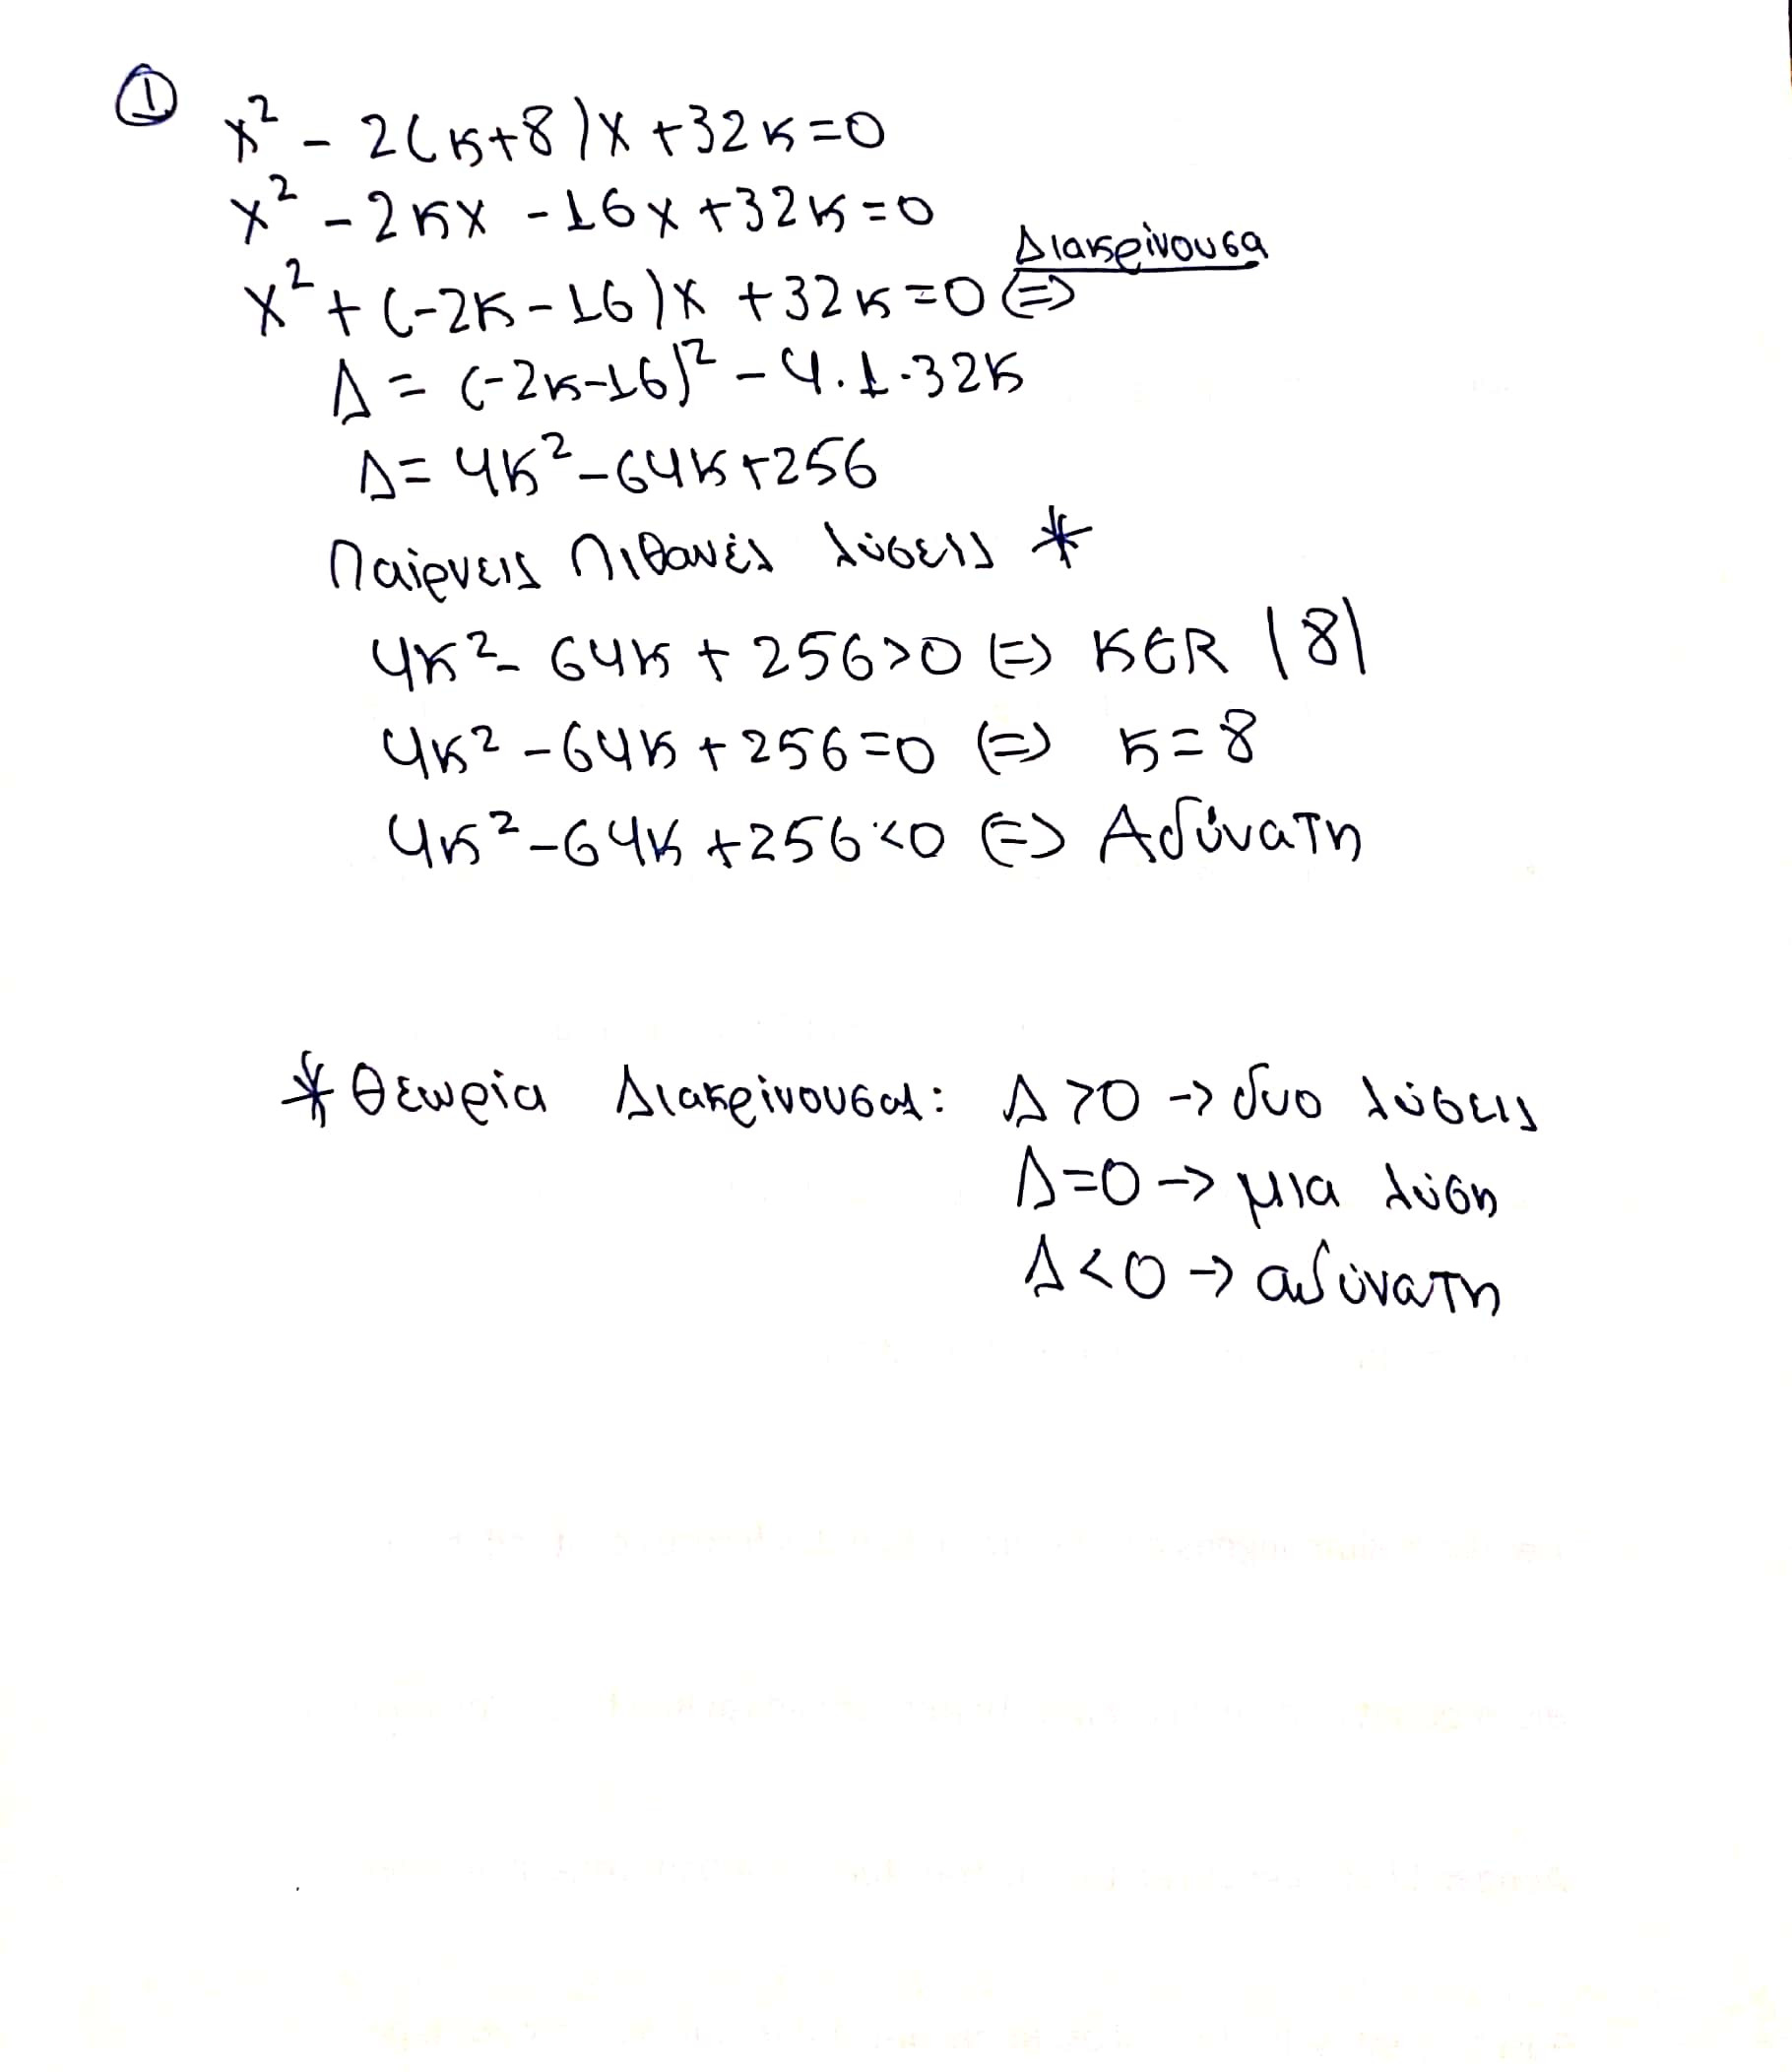 ① x² - 2(κ+8)x + 32κ = 0
x² - 2κx - 16x + 32κ = 0
Διακρίνουσα
x² + (-2κ - 16)x + 32κ = 0 (=)
Δ = (-2κ-16)² - 4.1.32κ
Δ = 4κ² - 64κ + 256
Παίρνεις Πιθανές λύσεις *
4κ² - 64κ + 256 > 0 (=) κ∈R |8|
4κ² - 64κ + 256 = 0 (=) κ = 8
4κ² - 64κ + 256 < 0 (=) Αδύνατη
* Θεωρία Διακρίνουσας: Δ > 0 -> δυο λύσεις
Δ = 0 -> μια λύση
Δ < 0 -> αδύνατη